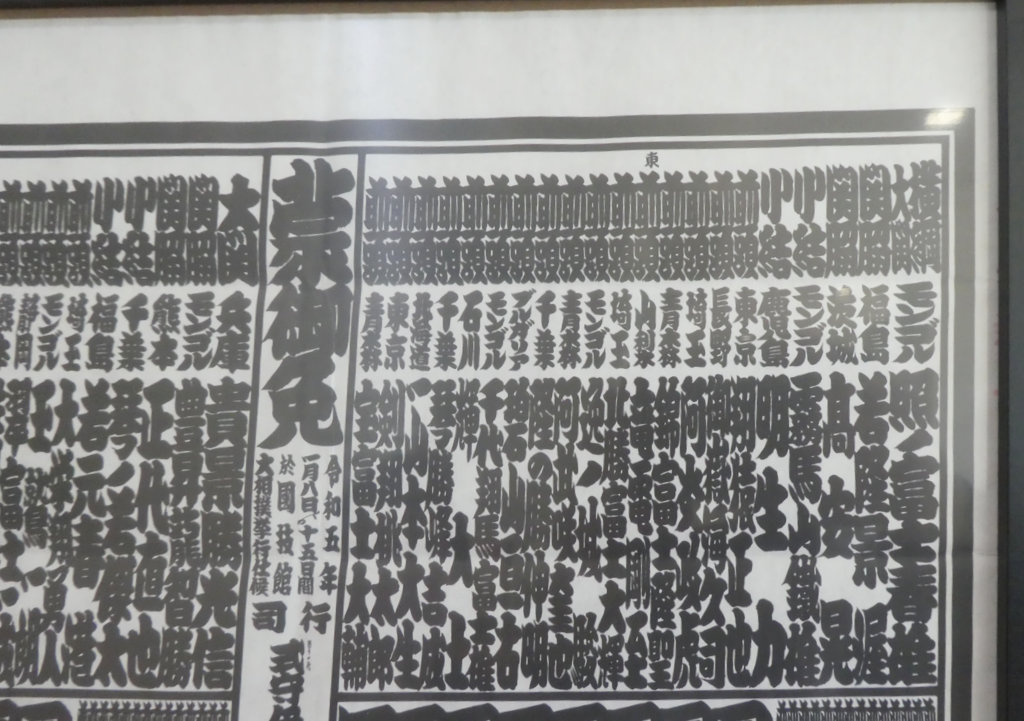 東
横綱大関 モンゴル 照ノ富士春雄
関脇 福島 若隆景渥
関脇 茨城 高安晃
小結 モンゴル 霧馬山鐵雄
小結 鹿児島 明生力
前頭 東京 翔猿正也
前頭 長野 御嶽海久司
前頭 埼玉 阿炎政虎
前頭 青森 錦富士隆聖
前頭 山梨 竜電剛至
前頭 埼玉 北勝富士大輝
前頭 モンゴル 逸ノ城駿
前頭 青森 阿武咲奎也
前頭 千葉 隆の勝伸明
前頭 ブルガリア 碧山亘右
前頭 モンゴル 千代翔馬富士雄
前頭 石川 輝大士
前頭 千葉 琴勝峰吉成
前頭 北海道 一山本大生
前頭 東京 剣翔桃太郎
前頭 青森 宝富士大輔
蒙御免
令和五年
一月八日ヨリ十五日間
於國技館
大相撲挙行仕候
行司
式守
大関 兵庫 貴景勝光信
関脇 モンゴル 豊昇龍智勝
関脇 熊本 正代直也
小結 千葉 琴ノ若傑太
小結 福島 若元春港
前頭 埼玉 大栄翔勇人
前頭 静岡
前頭